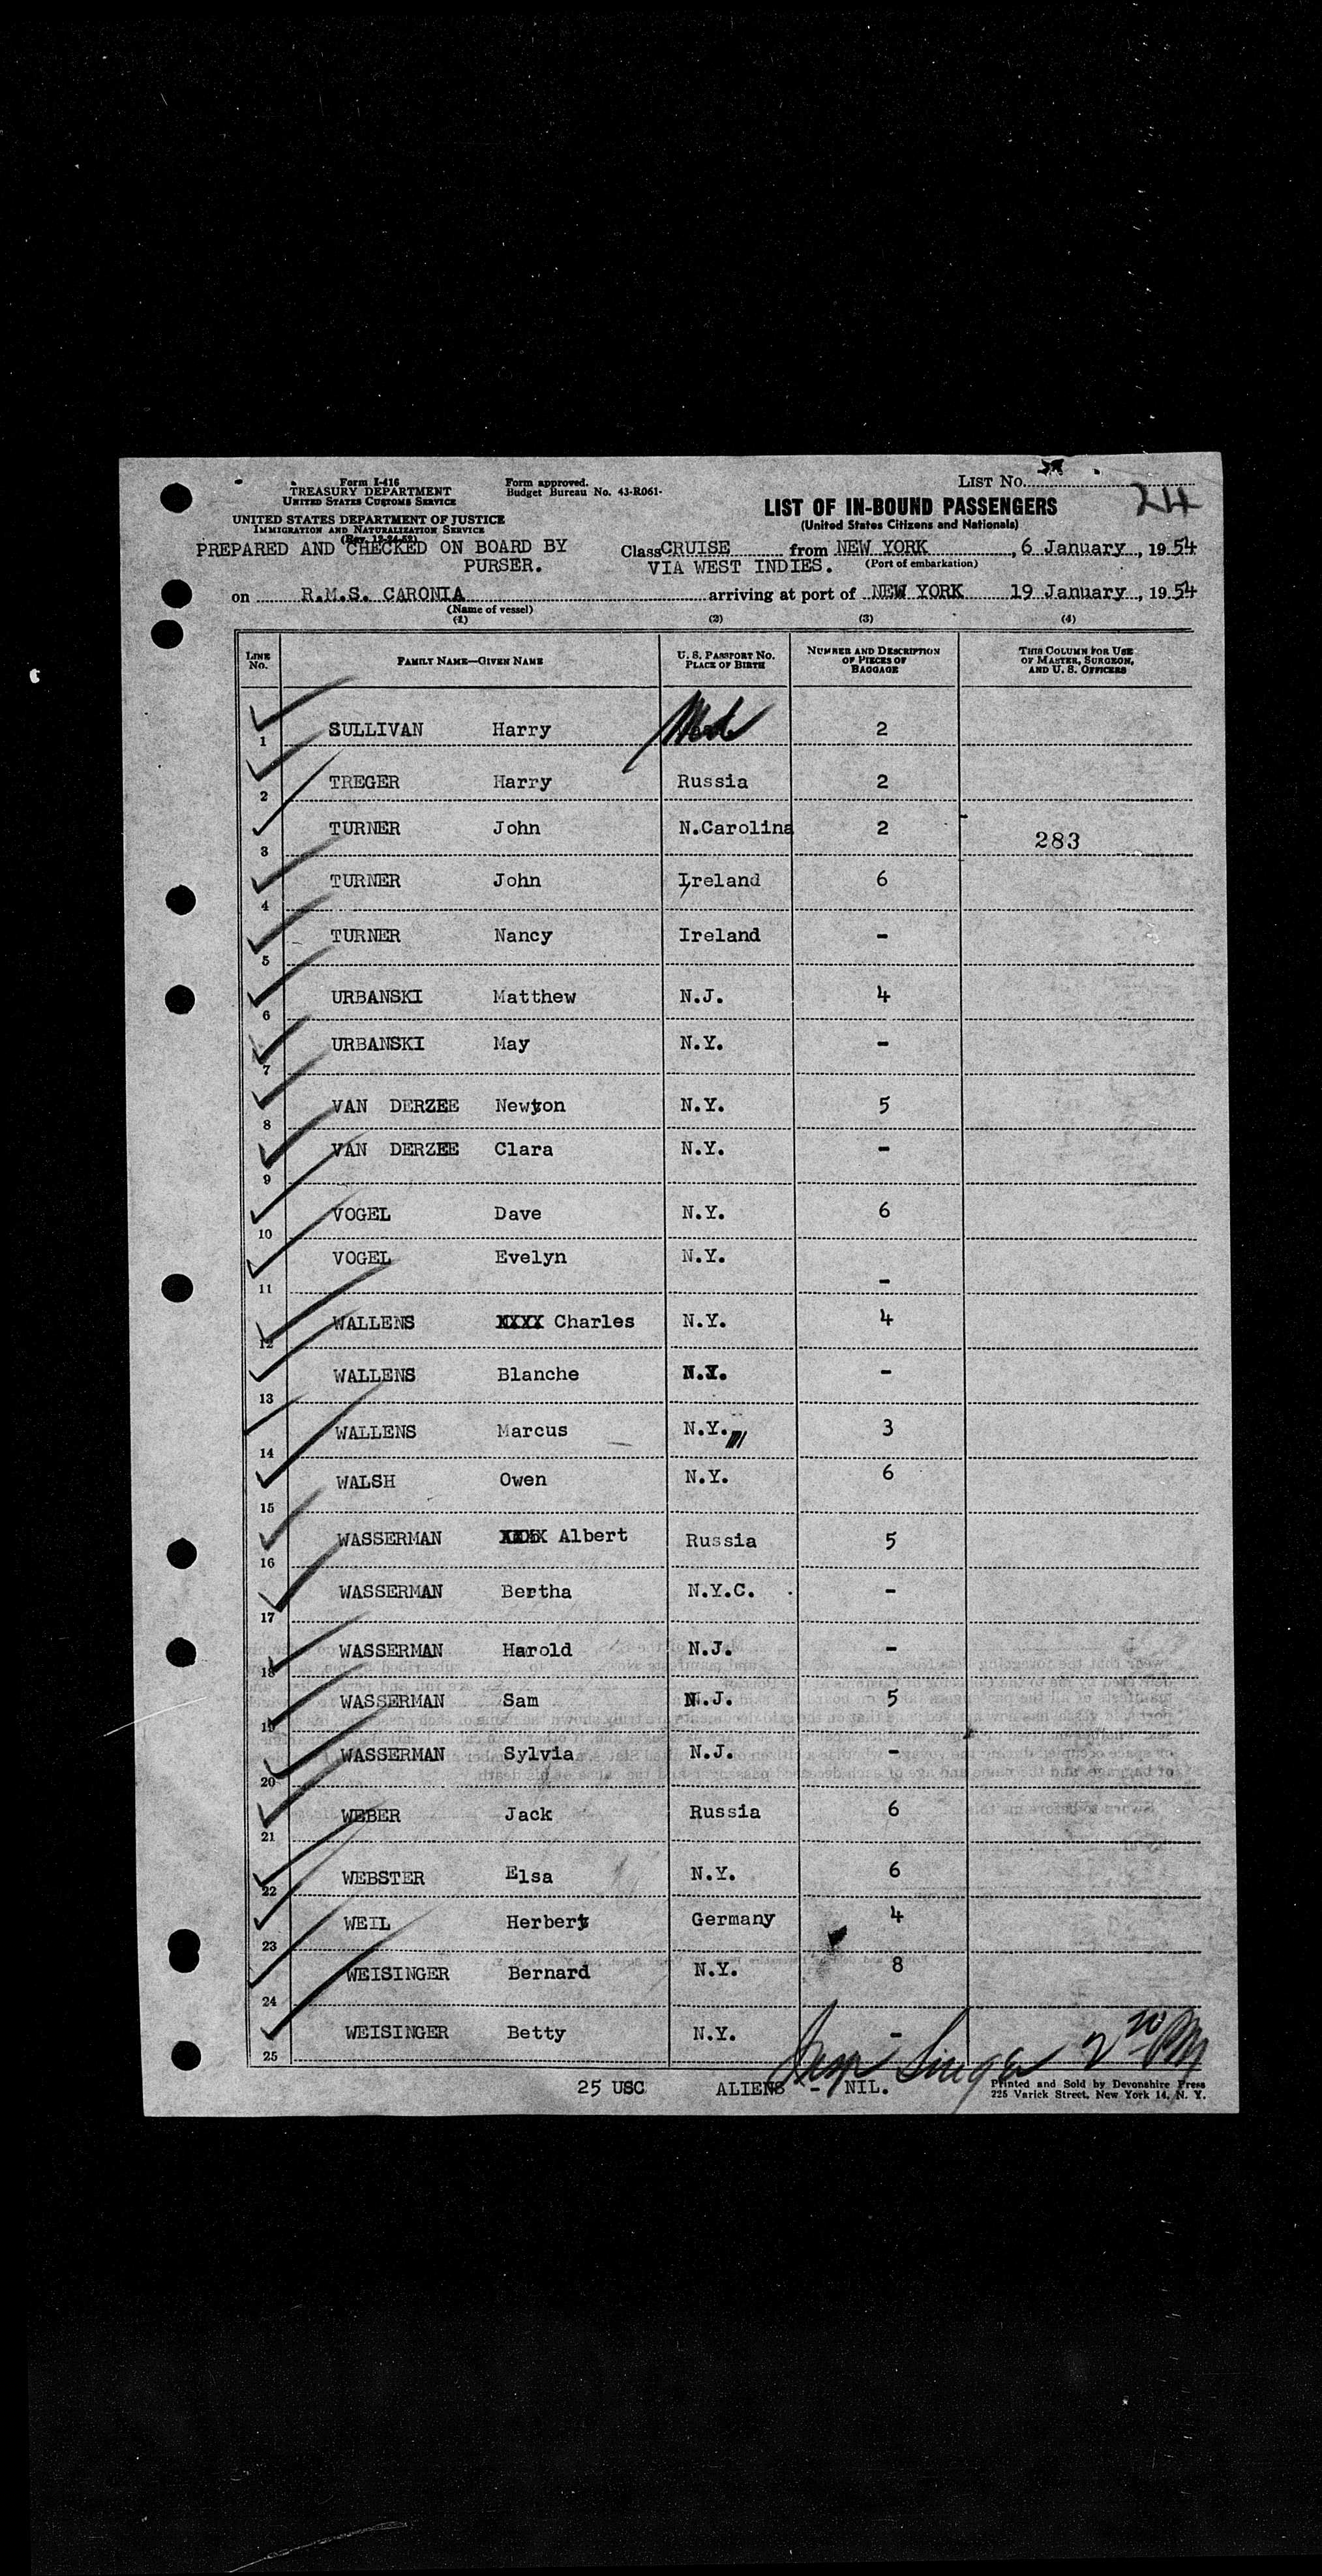 Form I-416
TREASURY DEPARTMENT
UNITED STATES CUSTOMS SERVICE
Form approved.
Budget Bureau No. 43-R061-
LIST NO.
24
UNITED STATES DEPARTMENT OF JUSTICE
IMMIGRATION AND NATURALIZATION SERVICE
(Rev. 12-24-52)
LIST OF IN-BOUND PASSENGERS
(United States Citizens and Nationals)
PREPARED AND CHECKED ON BOARD BY
PURSER.
Class CRUISE from NEW YORK, 6 January, 1954
VIA WEST INDIES. (Port of embarkation)
on R.M.S. CARONIA arriving at port of NEW YORK 19 January, 1954
(Name of vessel)
(1) (2) (3) (4)
LINE NO. FAMILY NAME—GIVEN NAME U. S. PASSPORT NO. PLACE OF BIRTH NUMBER AND DESCRIPTION OF PIECES OF BAGGAGE THIS COLUMN FOR USE OF MASTER, SURGEON, AND U. S. OFFICERS
1 SULLIVAN Harry 2
2 TREGER Harry Russia 2
3 TURNER John N.Carolina 2 283
4 TURNER John Ireland 6
5 TURNER Nancy Ireland -
6 URBANSKI Matthew N.J. 4
7 URBANSKI May N.Y. -
8 VAN DERZEE Newton N.Y. 5
9 VAN DERZEE Clara N.Y. -
10 VOGEL Dave N.Y. 6
11 VOGEL Evelyn N.Y. -
12 WALLENS XXXX Charles N.Y. 4
13 WALLENS Blanche N.Y. -
14 WALLENS Marcus N.Y. 3
15 WALSH Owen N.Y. 6
16 WASSERMAN Albert Russia 5
17 WASSERMAN Bertha N.Y.C. -
18 WASSERMAN Harold N.J. -
19 WASSERMAN Sam N.J. 5
20 WASSERMAN Sylvia N.J. -
21 WEBER Jack Russia 6
22 WEBSTER Elsa N.Y. 6
23 WEIL Herbert Germany 4
24 WEISINGER Bernard N.Y. 8
25 WEISINGER Betty N.Y. -
25 USC ALIENS - NIL.
Printed and Sold by Devonshire Press
225 Varick Street, New York 14, N. Y.